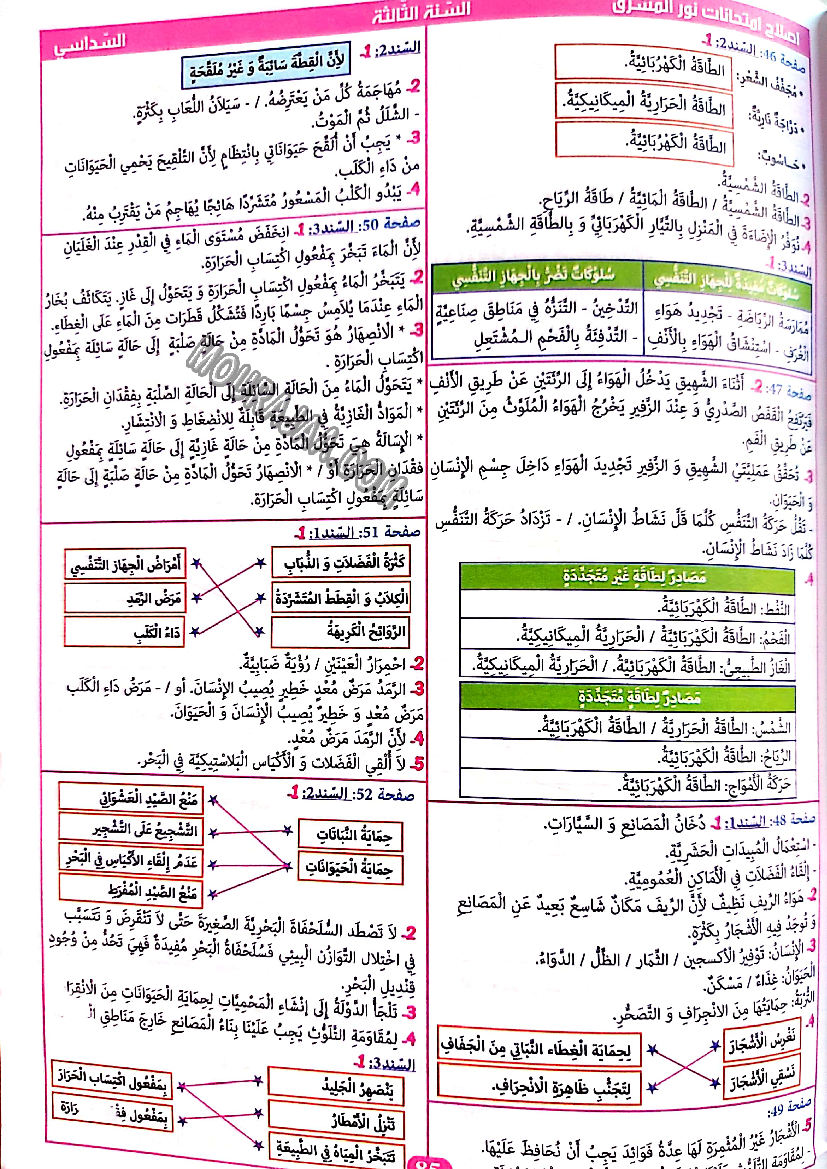 اصلاح امتحانات نور المشرق
السّنة الثّالثة
السّداسي
صفحة 46: السّند2: 1-
• مُجَفِّفُ الشَّعْرِ: الطَّاقَةُ الْكَهْرَبَائِيَّةُ.
• دَرَّاجَةٌ نَارِيَّةٌ: الطَّاقَةُ الْحَرَارِيَّةُ الْمِيكَانِيكِيَّةُ.
• حَاسُوبٌ: الطَّاقَةُ الْكَهْرَبَائِيَّةُ.
2- الطَّاقَةُ الشَّمْسِيَّةُ.
3- الطَّاقَةُ الشَّمْسِيَّةُ / الطَّاقَةُ الْمَائِيَّةُ / طَاقَةُ الرِّيَاحِ.
4- نُوَفِّرُ الْإِضَاءَةَ فِي الْمَنْزِلِ بِالتَّيَّارِ الْكَهْرَبَائِيِّ وَ بِالطَّاقَةِ الشَّمْسِيَّةِ.
السّند3: 1-
سُلُوكَاتٌ مُفِيدَةٌ لِلْجِهَازِ التَّنَفُّسِي
سُلُوكَاتٌ تَضُرُّ بِالْجِهَازِ التَّنَفُّسِي
مُمَارَسَةُ الرِّيَاضَةِ - تَجْدِيدُ هَوَاءِ
التَّدْخِينُ - التَّنَزُّهُ فِي مَنَاطِقَ صِنَاعِيَّةٍ
الْغُرَفِ - اسْتِنْشَاقُ الْهَوَاءِ بِالْأَنْفِ
- التَّدْفِئَةُ بِالْفَحْمِ الْمُشْتَعِلِ
صفحة 47: 2- أَثْنَاءَ الشَّهِيقِ يَدْخُلُ الْهَوَاءُ إِلَى الرِّئَتَيْنِ عَنْ طَرِيقِ الْأَنْفِ
فَيَرْتَفِعُ الْقَفَصُ الصَّدْرِيُّ وَ عِنْدَ الزَّفِيرِ يَخْرُجُ الْهَوَاءُ الْمُلَوَّثُ مِنَ الرِّئَتَيْنِ
عَنْ طَرِيقِ الْفَمِ.
3- تُحَقِّقُ عَمَلِيَّتَيْ الشَّهِيقِ وَ الزَّفِيرِ تَجْدِيدَ الْهَوَاءِ دَاخِلَ جِسْمِ الْإِنْسَانِ
وَ الْحَيَوَانِ.
- تَقِلُّ حَرَكَةُ التَّنَفُّسِ كُلَّمَا قَلَّ نَشَاطُ الْإِنْسَانِ. / - تَزْدَادُ حَرَكَةُ التَّنَفُّسِ
كُلَّمَا زَادَ نَشَاطُ الْإِنْسَانِ.
4- مَصَادِرٌ لِطَاقَةٍ غَيْرِ مُتَجَدِّدَةٍ
النَّفْطُ: الطَّاقَةُ الْكَهْرَبَائِيَّةُ.
الْفَحْمُ: الطَّاقَةُ الْكَهْرَبَائِيَّةُ / الْحَرَارِيَّةُ الْمِيكَانِيكِيَّةُ.
الْغَازُ الطَّبِيعِيُّ: الطَّاقَةُ الْكَهْرَبَائِيَّةُ. / الْحَرَارِيَّةُ الْمِيكَانِيكِيَّةُ.
مَصَادِرٌ لِطَاقَةٍ مُتَجَدِّدَةٍ
الشَّمْسُ: الطَّاقَةُ الْحَرَارِيَّةُ / الطَّاقَةُ الْكَهْرَبَائِيَّةُ.
الرِّيَاحُ: الطَّاقَةُ الْكَهْرَبَائِيَّةُ.
حَرَكَةُ الْأَمْوَاجِ: الطَّاقَةُ الْكَهْرَبَائِيَّةُ.
صفحة 48: السّند1: 1- دُخَانُ الْمَصَانِعِ وَ السَّيَّارَاتِ.
- اسْتِعْمَالُ الْمُبِيدَاتِ الْحَشَرِيَّةِ.
- إِلْقَاءُ الْفَضَلَاتِ فِي الْأَمَاكِنِ الْعُمُومِيَّةِ.
2- هَوَاءُ الرِّيفِ نَظِيفٌ لِأَنَّ الرِّيفَ مَكَانٌ شَاسِعٌ بَعِيدٌ عَنِ الْمَصَانِعِ
وَ تُوجَدُ فِيهِ الْأَشْجَارُ بِكَثْرَةٍ.
3- الْإِنْسَانُ: تَوْفِيرُ الْأُكْسِجِينِ / الثِّمَارُ / الظِّلُّ / الدَّوَاءُ.
الْحَيَوَانُ: غِذَاءٌ / مَسْكَنٌ.
التُّرْبَةُ: حِمَايَتُهَا مِنَ الِانْجِرَافِ وَ التَّصَحُّرِ.
4- نَغْرِسُ الْأَشْجَارَ
لِحِمَايَةِ الْغِطَاءِ النَّبَاتِي مِنَ الْجَفَافِ
نَسْقِي الْأَشْجَارَ
لِتَجَنُّبِ ظَاهِرَةِ الِانْجِرَافِ.
صفحة 49:
5- الْأَشْجَارُ غَيْرُ الْمُثْمِرَةِ لَهَا عِدَّةُ فَوَائِدَ يَجِبُ أَنْ نُحَافِظَ عَلَيْهَا.
السّند2: 1-
لِأَنَّ الْقِطَّةَ سَائِبَةٌ وَ غَيْرُ مُلَقَّحَةٍ
2- مُهَاجَمَةُ كُلِّ مَنْ يَعْتَرِضُهُ. / - سَيَلَانُ اللُّعَابِ بِكَثْرَةٍ.
- الشَّلَلُ ثُمَّ الْمَوْتُ.
3- * يَجِبُ أَنْ أُلَقِّحَ حَيَوَانَاتِي بِانْتِظَامٍ لِأَنَّ التَّلْقِيحَ يَحْمِي الْحَيَوَانَاتِ
مِنْ دَاءِ الْكَلَبِ.
4- يَبْدُو الْكَلْبُ الْمَسْعُورُ مُتَشَرِّدًا هَائِجًا يُهَاجِمُ مَنْ يَقْتَرِبُ مِنْهُ.
صفحة 50: السّند3: 1- انْخَفَضَ مُسْتَوَى الْمَاءِ فِي الْقِدْرِ عِنْدَ الْغَلَيَانِ
لِأَنَّ الْمَاءَ تَبَخَّرَ بِمَفْعُولِ اكْتِسَابِ الْحَرَارَةِ.
2- يَتَبَخَّرُ الْمَاءُ بِمَفْعُولِ اكْتِسَابِ الْحَرَارَةِ وَ يَتَحَوَّلُ إِلَى غَازٍ. يَتَكَاثَفُ بُخَارُ
الْمَاءِ عِنْدَمَا يُلَامِسُ جِسْمًا بَارِدًا فَتُشَكِّلُ قَطَرَاتٍ مِنَ الْمَاءِ عَلَى الْغِطَاءِ.
3- * الِانْصِهَارُ هُوَ تَحَوُّلُ الْمَادَّةِ مِنْ حَالَةٍ صَلْبَةٍ إِلَى حَالَةٍ سَائِلَةٍ بِمَفْعُولِ
اكْتِسَابِ الْحَرَارَةِ.
* يَتَحَوَّلُ الْمَاءُ مِنَ الْحَالَةِ السَّائِلَةِ إِلَى الْحَالَةِ الصَّلْبَةِ بِفِقْدَانِ الْحَرَارَةِ.
* الْمَوَادُّ الْغَازِيَّةُ فِي الطَّبِيعَةِ قَابِلَةٌ لِلِانْضِغَاطِ وَ الِانْتِشَارِ.
* الْإِسَالَةُ هِيَ تَحَوُّلُ الْمَادَّةِ مِنْ حَالَةٍ غَازِيَّةٍ إِلَى حَالَةٍ سَائِلَةٍ بِمَفْعُولِ
فُقْدَانِ الْحَرَارَةِ أَوْ / * الِانْصِهَارُ تَحَوُّلُ الْمَادَّةِ مِنْ حَالَةٍ صَلْبَةٍ إِلَى حَالَةٍ
سَائِلَةٍ بِمَفْعُولِ اكْتِسَابِ الْحَرَارَةِ.
صفحة 51: السّند1: 1-
كَثْرَةُ الْفَضَلَاتِ وَ الذُّبَابِ
أَمْرَاضُ الْجِهَازِ التَّنَفُّسِي
الْكِلَابُ وَ الْقِطَطُ الْمُتَشَرِّدَةُ
مَرَضُ الرَّمَدِ
الرَّوَائِحُ الْكَرِيهَةُ
دَاءُ الْكَلَبِ
2- احْمِرَارُ الْعَيْنَيْنِ / رُؤْيَةٌ ضَبَابِيَّةٌ.
3- الرَّمَدُ مَرَضٌ مُعْدٍ خَطِيرٌ يُصِيبُ الْإِنْسَانَ. أو / - مَرَضُ دَاءِ الْكَلَبِ
مَرَضٌ مُعْدٍ وَ خَطِيرٌ يُصِيبُ الْإِنْسَانَ وَ الْحَيَوَانَ.
4- لِأَنَّ الرَّمَدَ مَرَضٌ مُعْدٍ.
5- لاَ أُلْقِي الْفَضَلَاتِ وَ الْأَكْيَاسِ الْبَلَاسْتِيكِيَّةِ فِي الْبَحْرِ.
صفحة 52: السّند2: 1-
مَنْعُ الصَّيْدِ الْعَشْوَائِي
حِمَايَةُ النَّبَاتَاتِ
التَّشْجِيعُ عَلَى التَّشْجِيرِ
حِمَايَةُ الْحَيَوَانَاتِ
عَدَمُ إِلْقَاءِ الْأَكْيَاسِ فِي الْبَحْرِ
مَنْعُ الصَّيْدِ الْمُفْرِطِ
2- لاَ تَصْطَدِ السُّلَحْفَاةَ الْبَحْرِيَّةَ الصَّغِيرَةَ حَتَّى لَا تَنْقَرِضَ وَ تَتَسَبَّبَ
فِي اخْتِلَالِ التَّوَازُنِ الْبِيئِي فَسُلَحْفَاةُ الْبَحْرِ مُفِيدَةٌ فَهِيَ تَحُدُّ مِنْ وُجُودِ
قِنْدِيلِ الْبَحْرِ.
3- تَلْجَأُ الدَّوْلَةُ إِلَى إِنْشَاءِ الْمَحْمِيَّاتِ لِحِمَايَةِ الْحَيَوَانَاتِ مِنَ الِانْقِرَا
4- لِمُقَاوَمَةِ التَّلَوُّثِ يَجِبُ عَلَيْنَا بِنَاءُ الْمَصَانِعِ خَارِجَ مَنَاطِقِ
السّند3: 1-
يَنْصَهِرُ الْجَلِيدُ
بِمَفْعُولِ اكْتِسَابِ الْحَرَارَ
تَنْزِلُ الْأَمْطَارُ
بِمَفْعُولِ فِقْ رَارَةِ
تَتَبَخَّرُ الْمِيَاهُ فِي الطَّبِيعَةِ